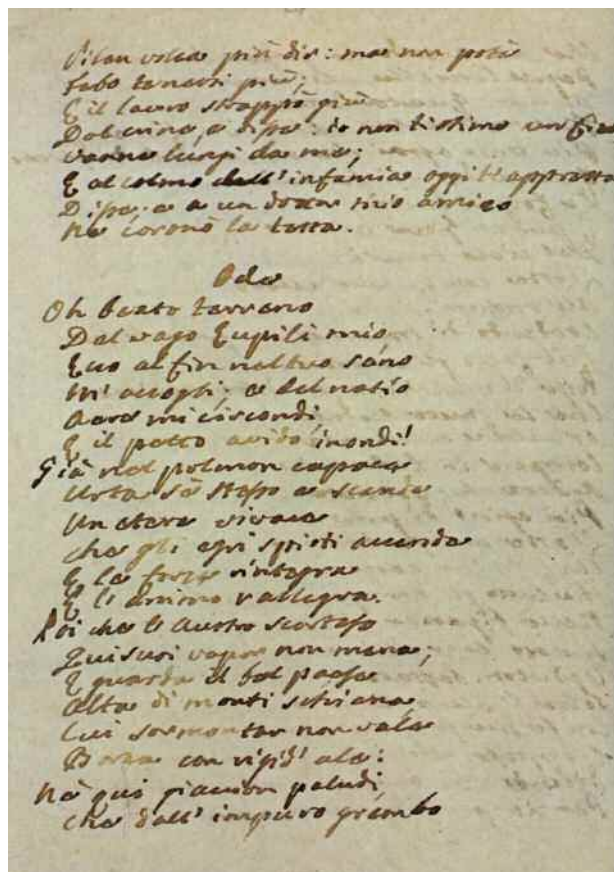 volea più dir: ma non potè
Febo tenersi più;
E il lauro strappò giù
Dal crine, e disse: io non ti stimo un fico
vanne lungi da me;
E al colmo dell' infamia oggi t'appressa
Disse; e a un mio amico
Ne coronò la testa.
Ode
Oh beato terreno
Del vago Eupili mio,
Ecco al fin nel tuo seno
M' accogli; e del natio
Aere mi circondi
E il petto avido inondi!
Già nel polmon capace
Urta sè stesso e scende
Un etere vivace
Che gli egri spirti accende
E le forze rintegra
E l' animo rallegra.
Poi che l' Austro scortese
Qui suoi vapor non mena;
E guarda il bel paese
Alta di monti schiena,
Cui sormontar non vale
Borea con rigid' ale:
Nè qui giaccion paludi,
Che dall' impuro grembo